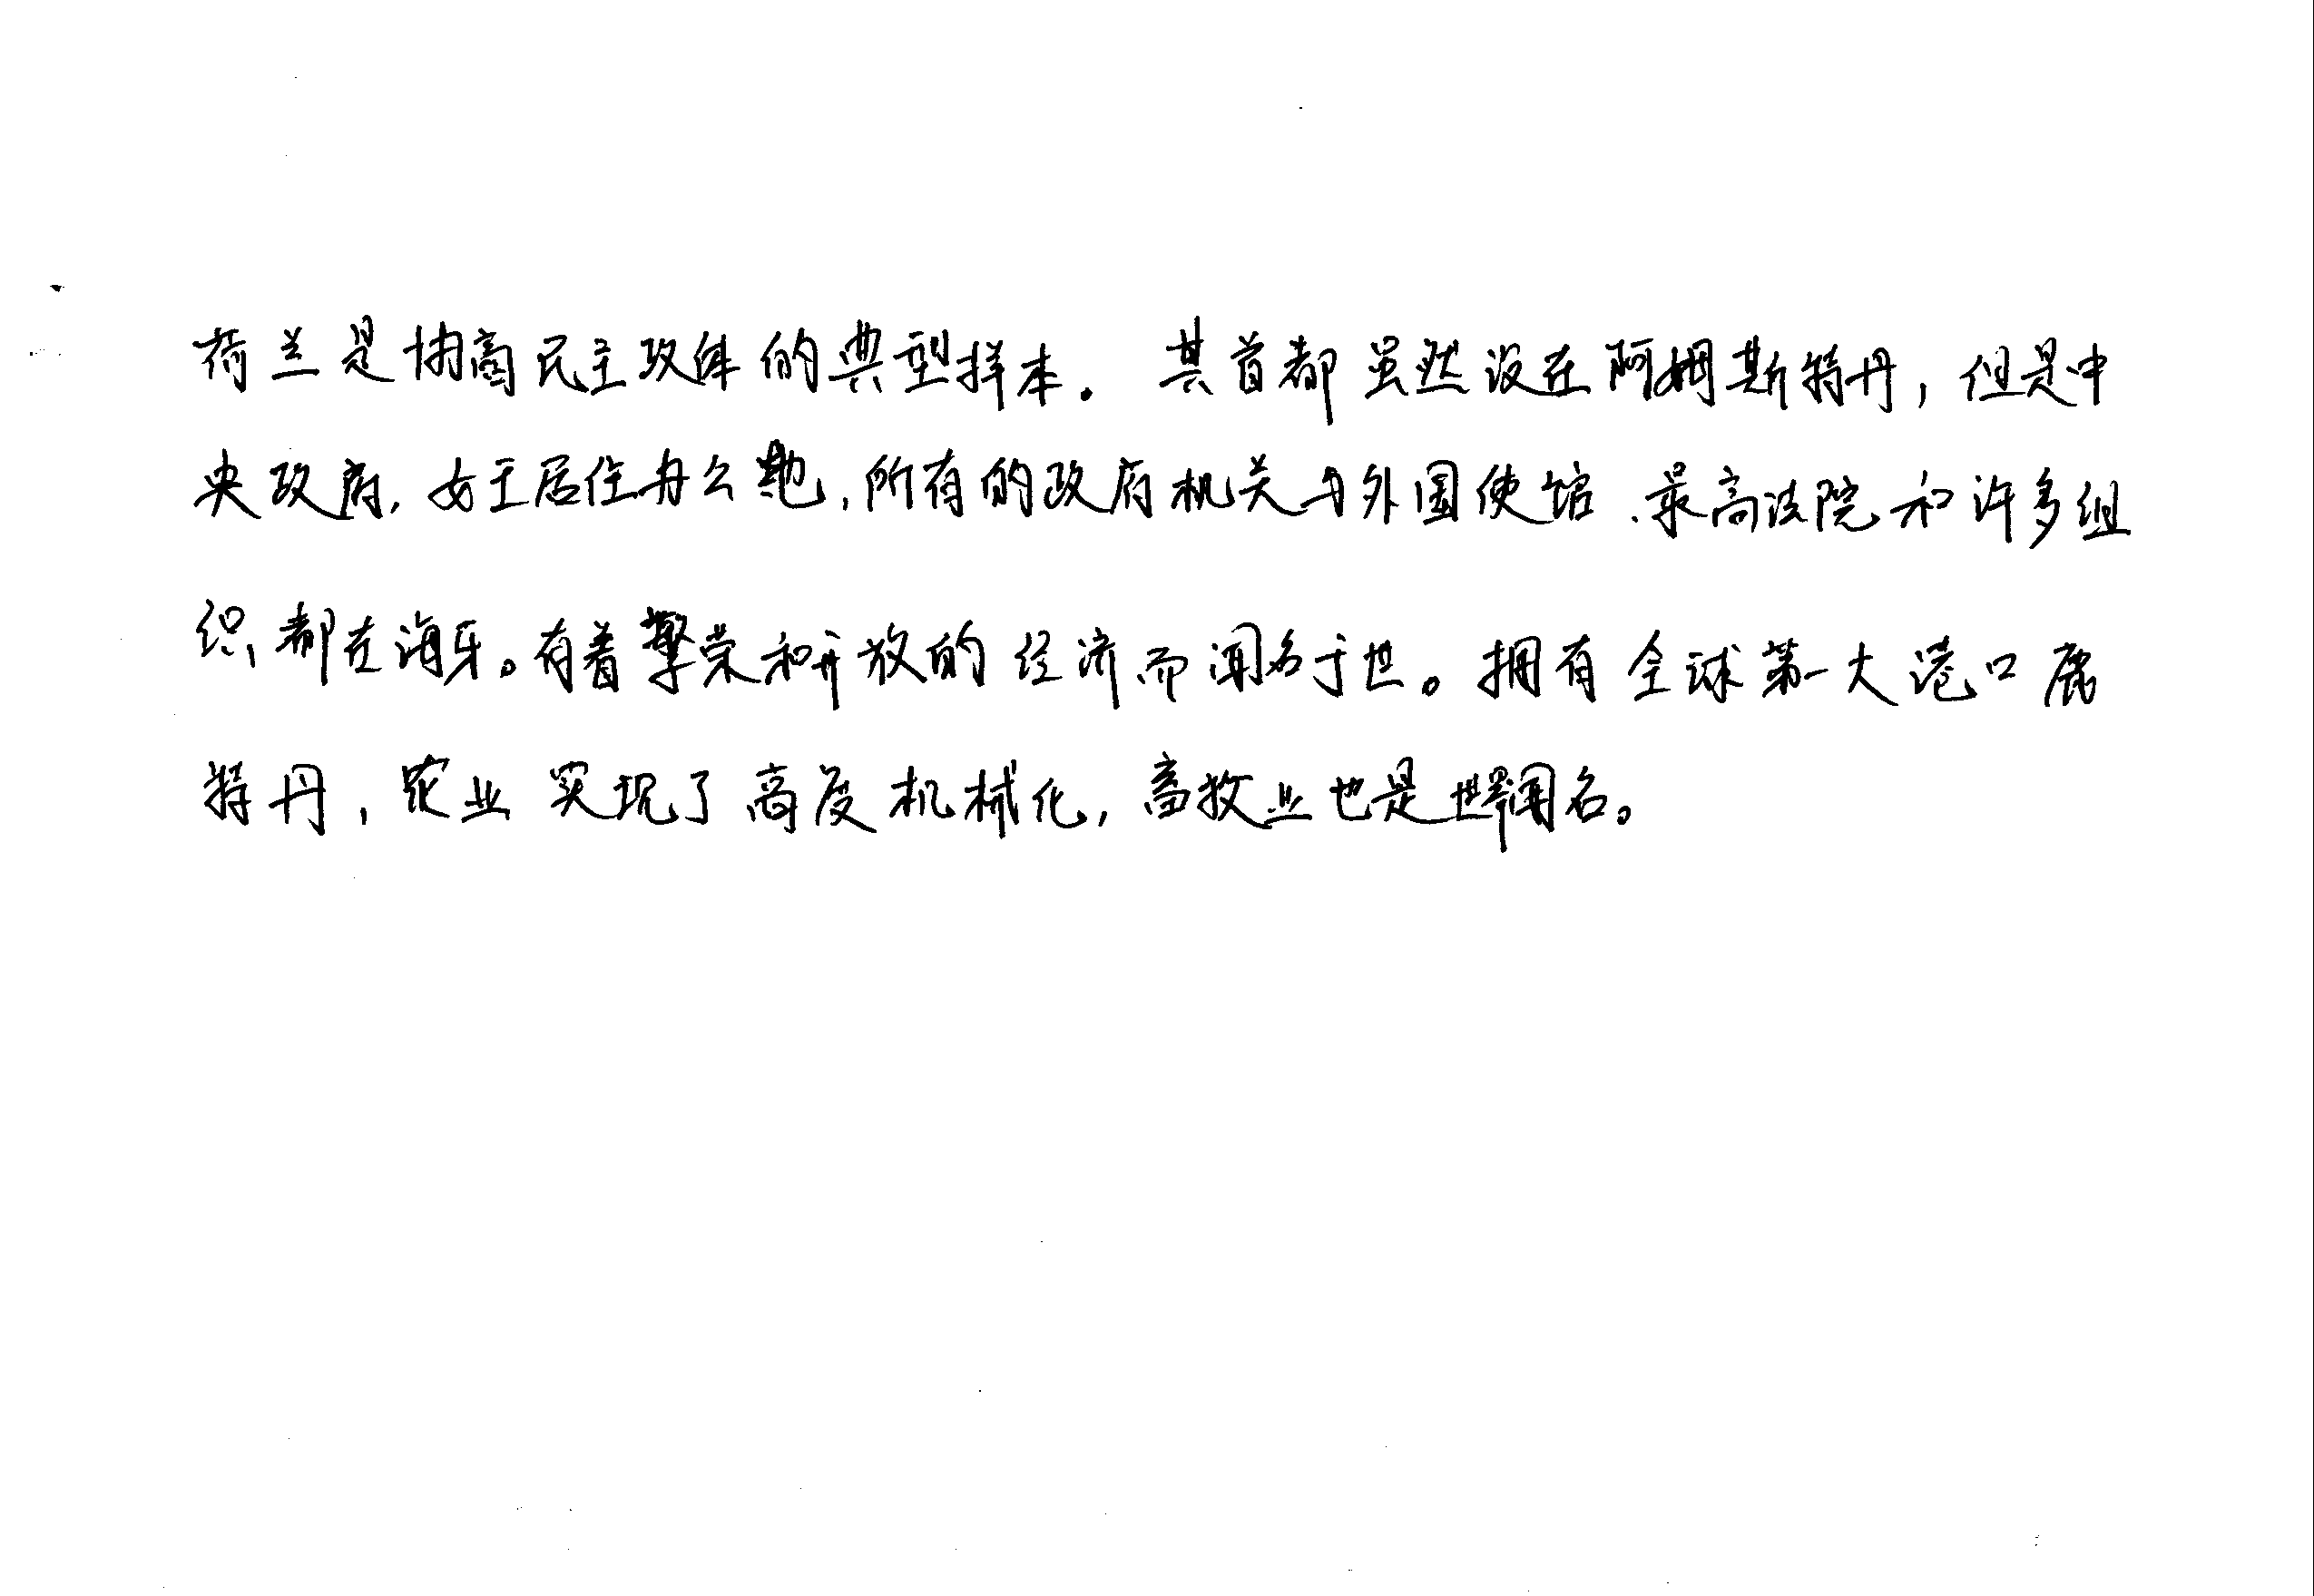 荷兰是协商民主政体的典型样本。其首都虽然设在阿姆斯特丹，但是中
央政府，女王居住办公地，所有的政府机关与外国使馆、最高法院和许多组
织都在海牙。有着繁荣和开放的经济而闻名于世。拥有全球第一大港口鹿
特丹，农业实现了高度机械化，畜牧业也是世界闻名。